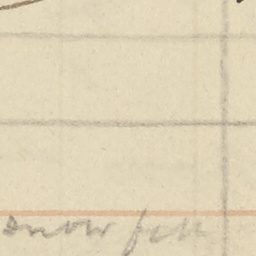 snow fell